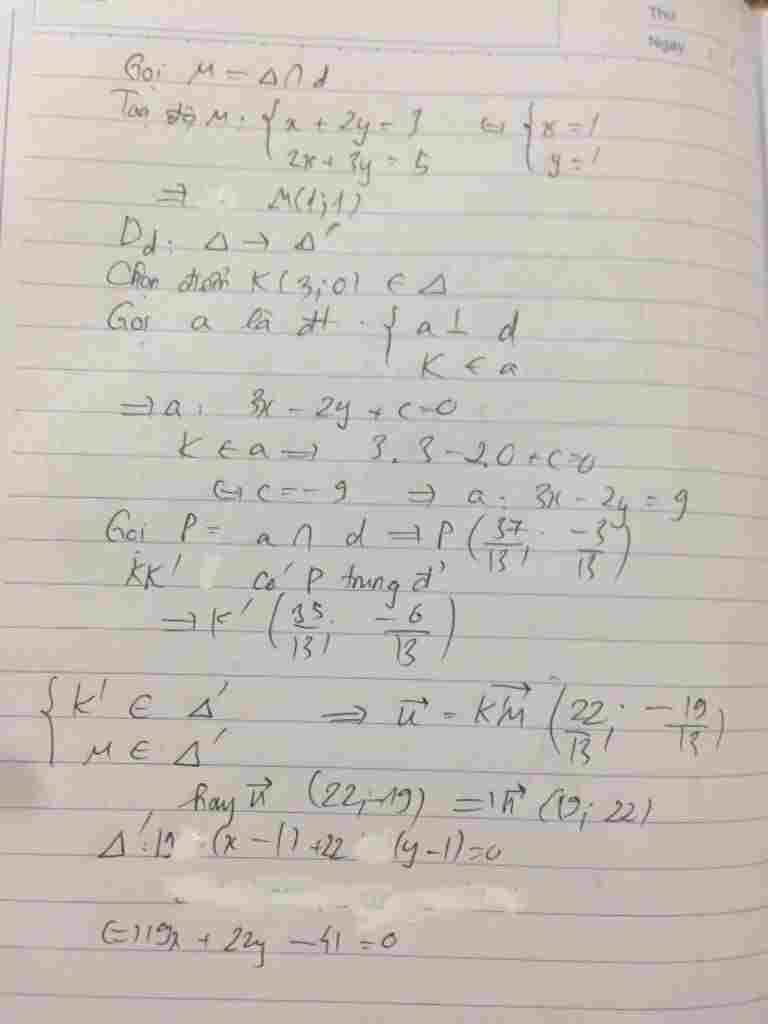 Thứ
Ngày
Gọi M = Δ∩d
Toạ độ M: { x + 2y = 3 ⇔ { x = 1
2x + 3y = 5 y = 1
⇒ M(1;1)
Dd: Δ → Δ'
Chọn điểm K(3;0) ∈ Δ
Gọi a là đt { a ⊥ d
K ∈ a
⇒ a: 3x - 2y + c = 0
K ∈ a ⇒ 3.3 - 2.0 + c = 0
⇔ c = -9 ⇒ a: 3x - 2y = 9
Gọi P = a ∩ d ⇒ P (37/13; -3/13)
KK' có P trung đ'
⇒ K' (35/13; -6/13)
{ K' ∈ Δ' ⇒ u⃗ = KM⃗ (22/13; -19/13)
M ∈ Δ'
hay u⃗ (22;-19) ⇒ n⃗ (19; 22)
Δ': 19 (x-1) + 22 (y-1) = 0
⇔ 19x + 22y - 41 = 0